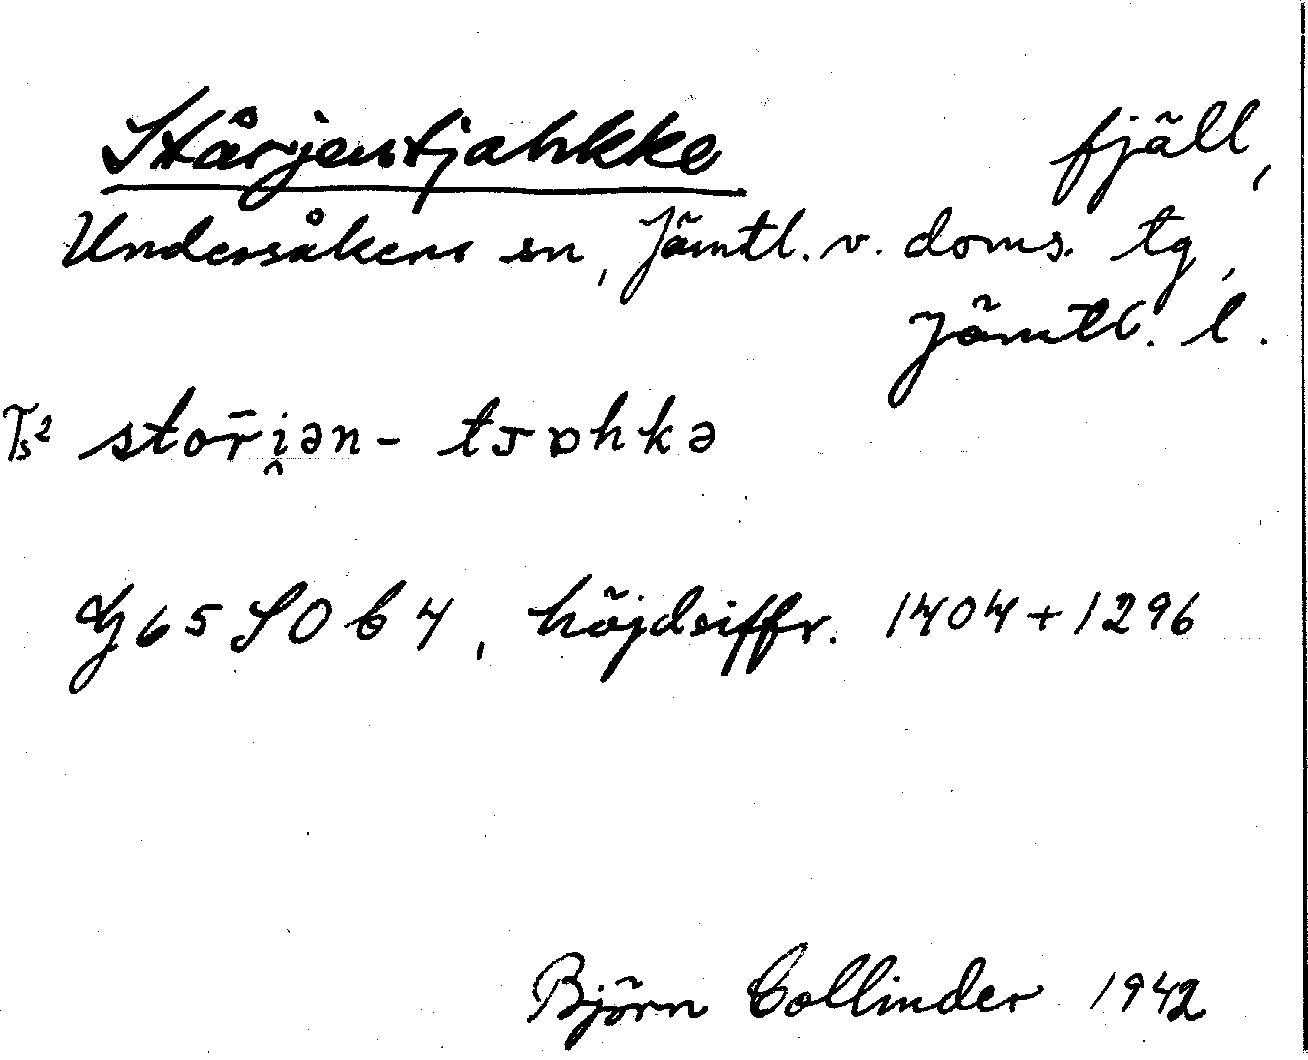 Stårjentjahkke fjäll,
Undersåkers sn, Jämtl. v. doms. tg,
Jämtl. l.
stor̄i̯ən-
G65SOb4, höjdsiffr. 1404+1296
Björn Collinder 1942